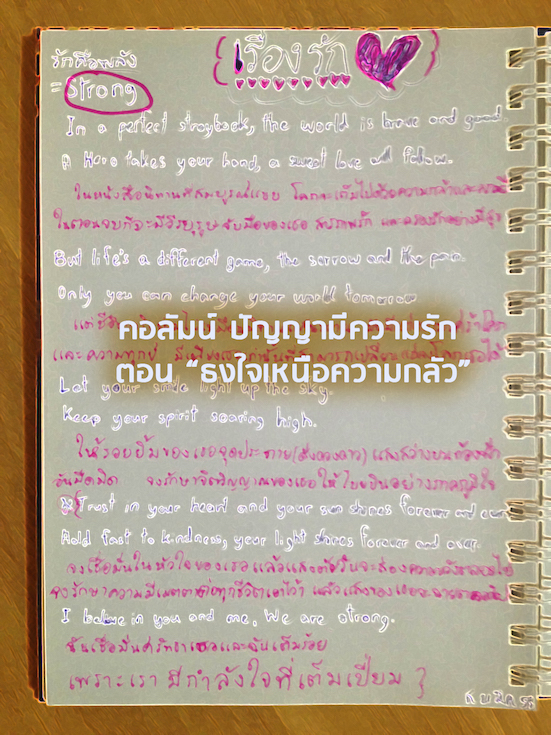 รักคือพลัง
= Strong
{เรื่องรัก}
In a perfect storybook, the world is brave and good.
A Hero takes your hand, a sweet love will follow.
ในหนังสือนิทานที่สมบูรณ์แบบ โลกจะเต็มไปด้วยความกล้าและ
ในตอนจบก็จะมีวีรบุรุษจับมือของเธอ
But life's a different game, the sorrow and the pain.
Only you can change your world tomorrow
คอลัมน์ ปัญญามีความรัก
ตอน “ธงใจเหนือความกลัว”
Let your smile light up the sky.
Keep your spirit soaring high.
ให้รอยยิ้มของเธอจุดประกาย(ดั่งดวงดาว) แสงสว่างบนท้องฟ้า
อันมืดมิด จงรักษาจิตวิญญาณของเธอให้โบยบินอย่างภาคภูมิใจ
Trust in your heart and your sun shines forever and ever
Hold fast to kindness, your light shines forever and ever.
จงเชื่อมั่นในหัวใจของเธอ แล้วแสงอาทิตย์ในจะส่อง
จงรักษาความมีเมตตาต่อทุกชีวิตเอาไว้ แล้วแสงของเธอจะ
I believe in you and me, We are strong.
ฉันเชื่อมั่นศรัทธาเธอและฉันเต็มร้อย
เพราะเรามีกำลังใจที่เต็มเปี่ยม }